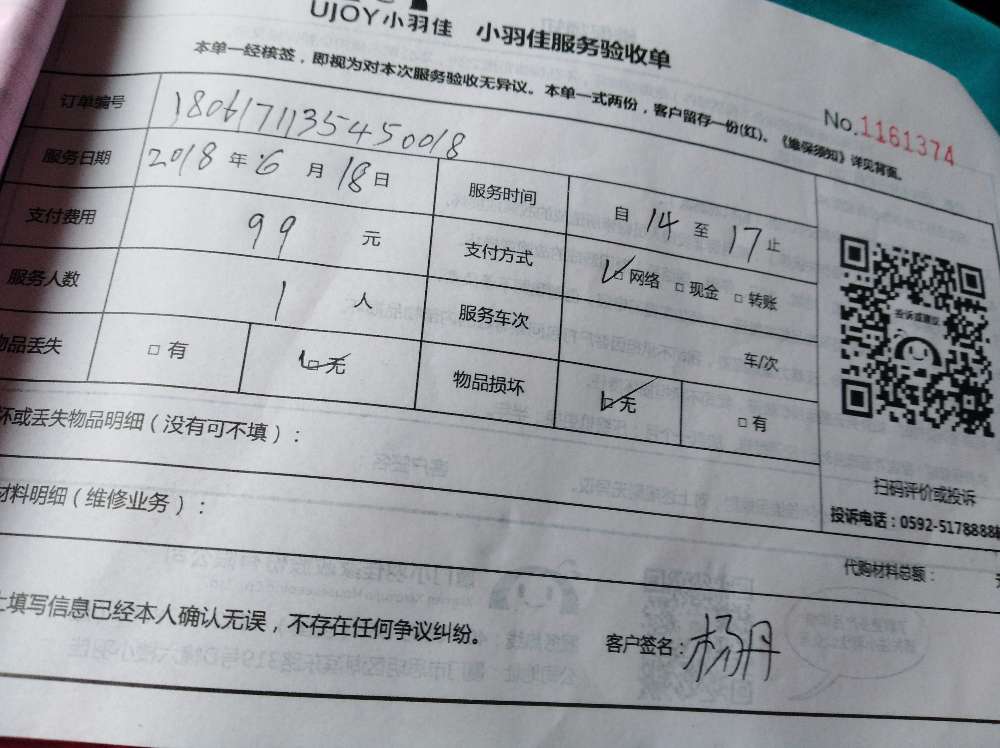 UJOY小羽佳 小羽佳服务验收单
本单一经核签，即视为对本次服务验收无异议。本单一式两份，客户留存一份(红)、《维保须知》详见背面。
No.1161374
订单编号 1806171135450018
服务日期 2018年6月18日 服务时间 自14至17止
支付费用 99元 支付方式 □网络 □现金 □转账
服务人数 1人 服务车次 车/次
物品丢失 □有 □无 物品损坏 □无 □有
投诉或建议
扫码评价或投诉
投诉电话：0592-5178888
坏或丢失物品明细（没有可不填）：
材料明细（维修业务）：
代购材料总额：
上填写信息已经本人确认无误，不存在任何争议纠纷。 客户签名：杨丹